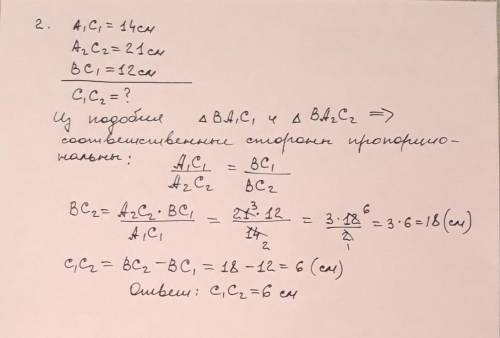 2. A₁C₁ = 14 см
A₂C₂ = 21 см
BC₁ = 12 см
C₁C₂ = ?
Из подобия △BA₁C₁ и △BA₂C₂ ⟹
соответственные стороны пропорцио-
нальны:
A₁C₁/A₂C₂ = BC₁/BC₂
BC₂ = A₂C₂·BC₁/A₁C₁ = 21³·12/14₂ = 3·18⁶/2₁ = 3·6 = 18 (см)
C₁C₂ = BC₂ − BC₁ = 18 − 12 = 6 (см)
Ответ: C₁C₂ = 6 см